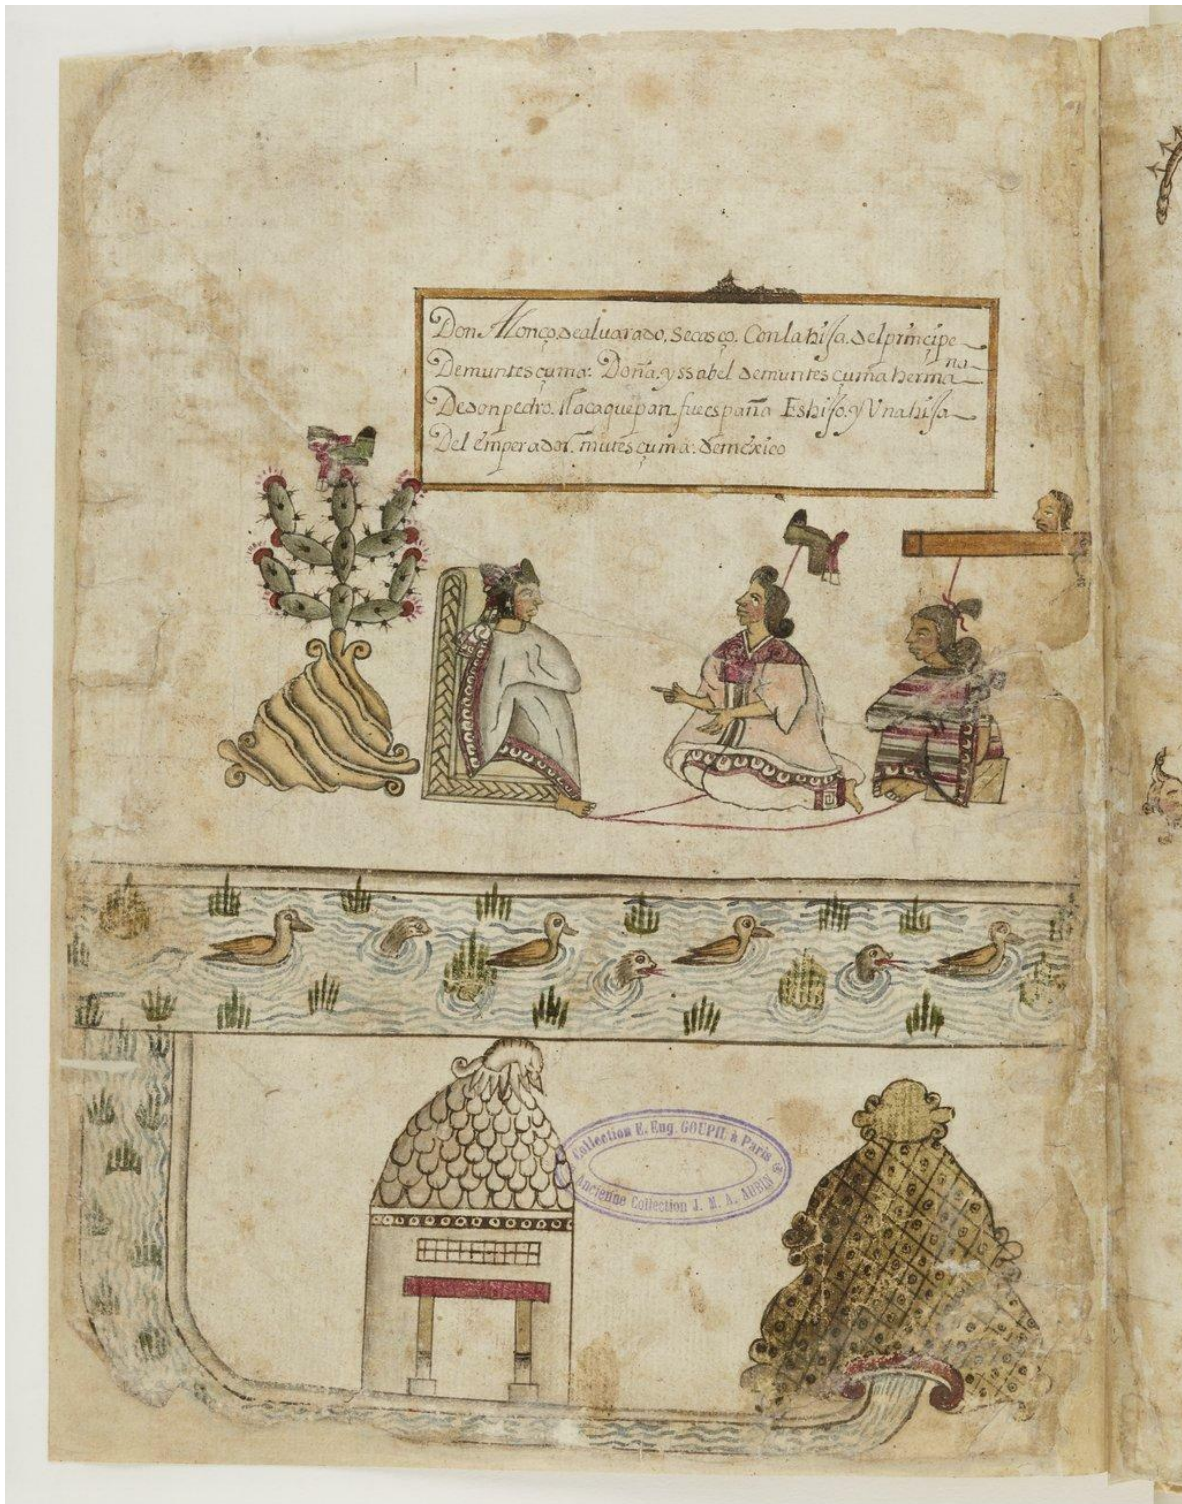 Don Alonço. de aluarado. Se casço. Con la hija. del principe
De muntesçuma: Doña. yssabel de muntesçuma hermana
De don pedro. tlacaquepan fue españa Es hijo. y Vna hija
Del emperador. mutesçuma: de mexico
Collection E. Eug. GOUPIL à Paris
Ancienne Collection J. M. A. AUBIN